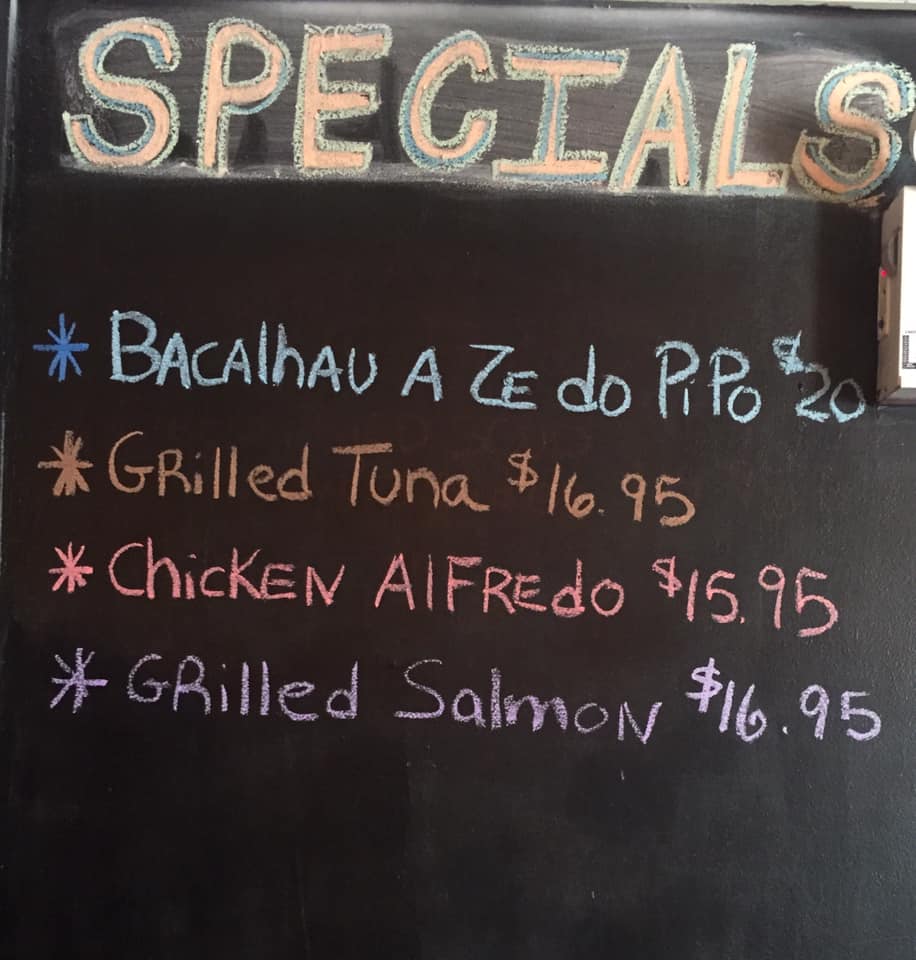 SPECIALS
* BACAlhAU A ZE do PiPo $20
* GRilled Tuna $16.95
* ChicKEN AlFREdo $15.95
* GRilled SalmoN $16.95